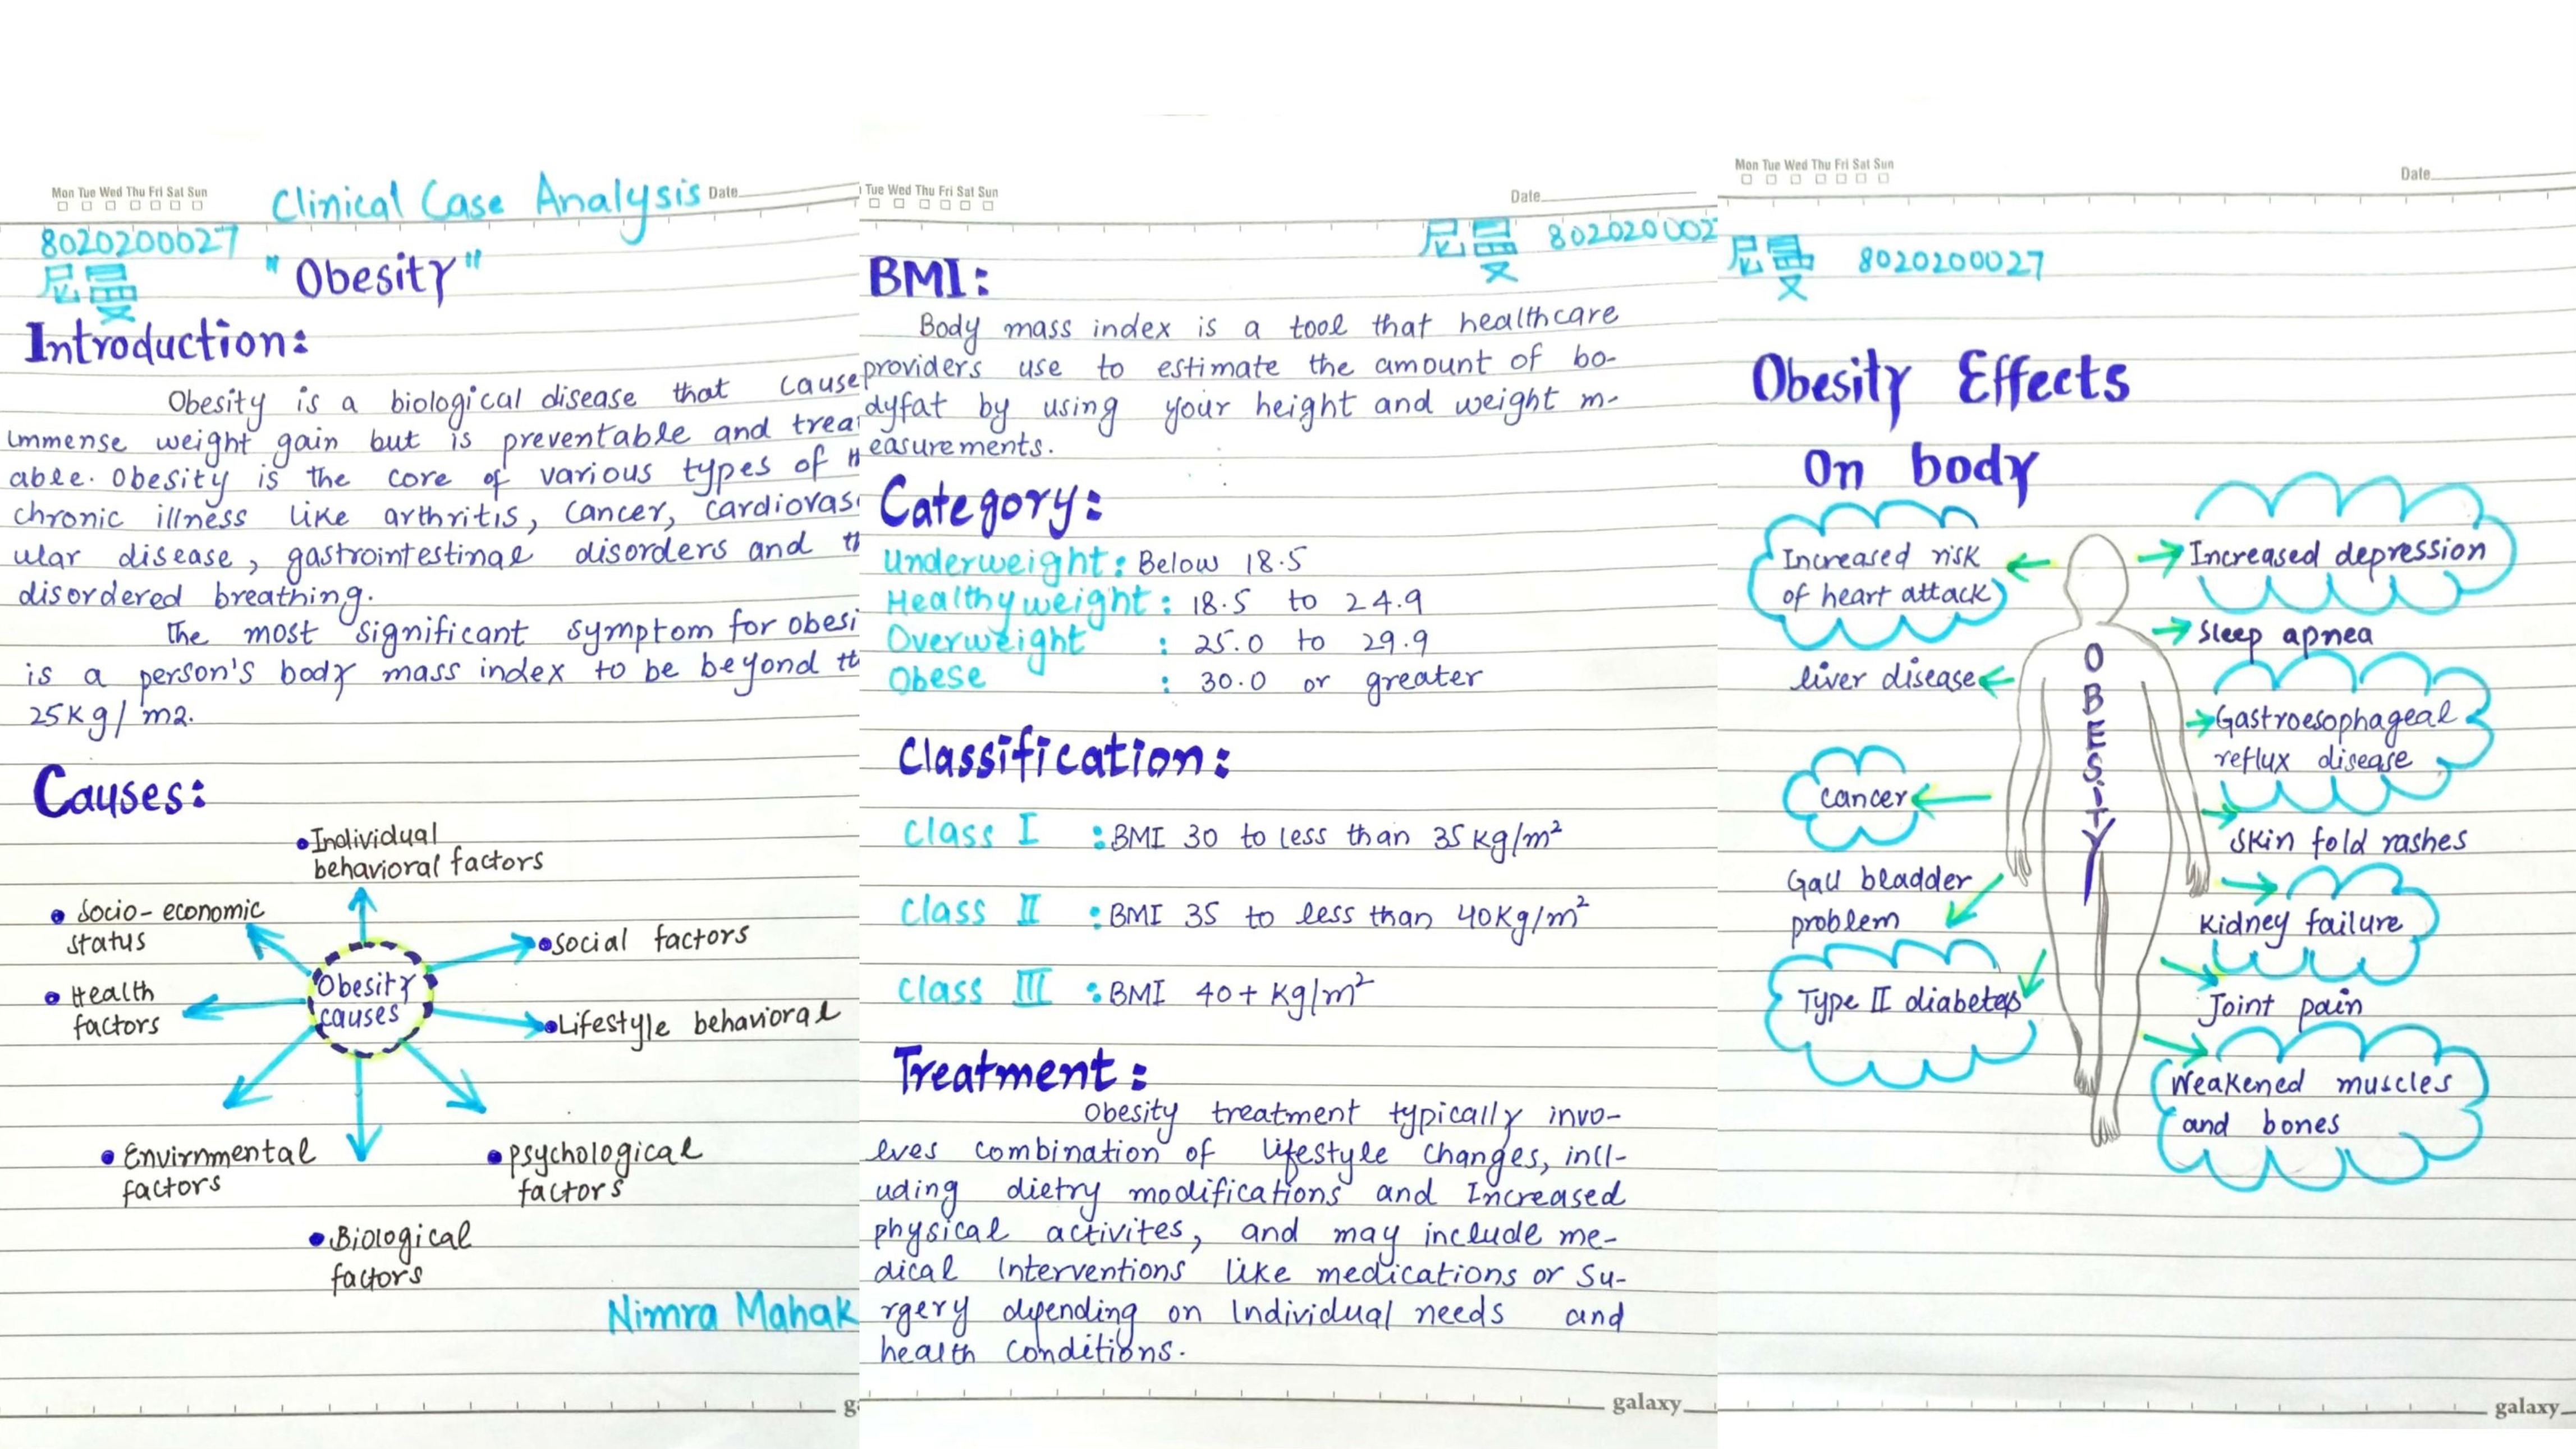 Mon Tue Wed Thu Fri Sat Sun
Clinical Case Analysis
Date
8020200027
尼曼
"Obesity"
Introduction:
Obesity is a biological disease that cause
immense weight gain but is preventable and trea
able. Obesity is the core of various types of
chronic illness like arthritis, cancer, cardiovasc
ular disease, gastrointestinal disorders and th
disordered breathing.
The most significant symptom for obesi
is a person's body mass index to be beyond th
25Kg/m2.
Causes:
•Individual
behavioral factors
• Socio-economic
status
•social factors
• Health
factors
Obesity
causes
•Lifestyle behavioral
• Envirnmental
factors
•psychological
factors
•Biological
factors
Nimra Mahak
g
Tue Wed Thu Fri Sat Sun
Date
尼曼 802020002
BMI:
Body mass index is a tool that healthcare
providers use to estimate the amount of bo-
dyfat by using your height and weight m-
easurements.
Category:
Underweight: Below 18.5
Healthyweight: 18.5 to 24.9
Overweight : 25.0 to 29.9
Obese : 30.0 or greater
Classification:
Class I :BMI 30 to less than 35 kg/m²
Class II :BMI 35 to less than 40Kg/m²
Class III :BMI 40+ Kg/m²
Treatment:
Obesity treatment typically invo-
lves combination of lifestyle changes, incl-
uding dietry modifications and Increased
physical activites, and may include me-
dical Interventions like medications or su-
rgery depending on Individual needs and
health conditions.
galaxy
Mon Tue Wed Thu Fri Sat Sun
Date
尼曼 8020200027
Obesity Effects
On body
Increased risk
of heart attack
Increased depression
Sleep apnea
liver disease
OBESITY
Gastroesophageal
reflux disease
cancer
Skin fold rashes
Gall bladder
problem
Kidney failure
Type II diabetes
Joint pain
Weakened muscles
and bones
galaxy